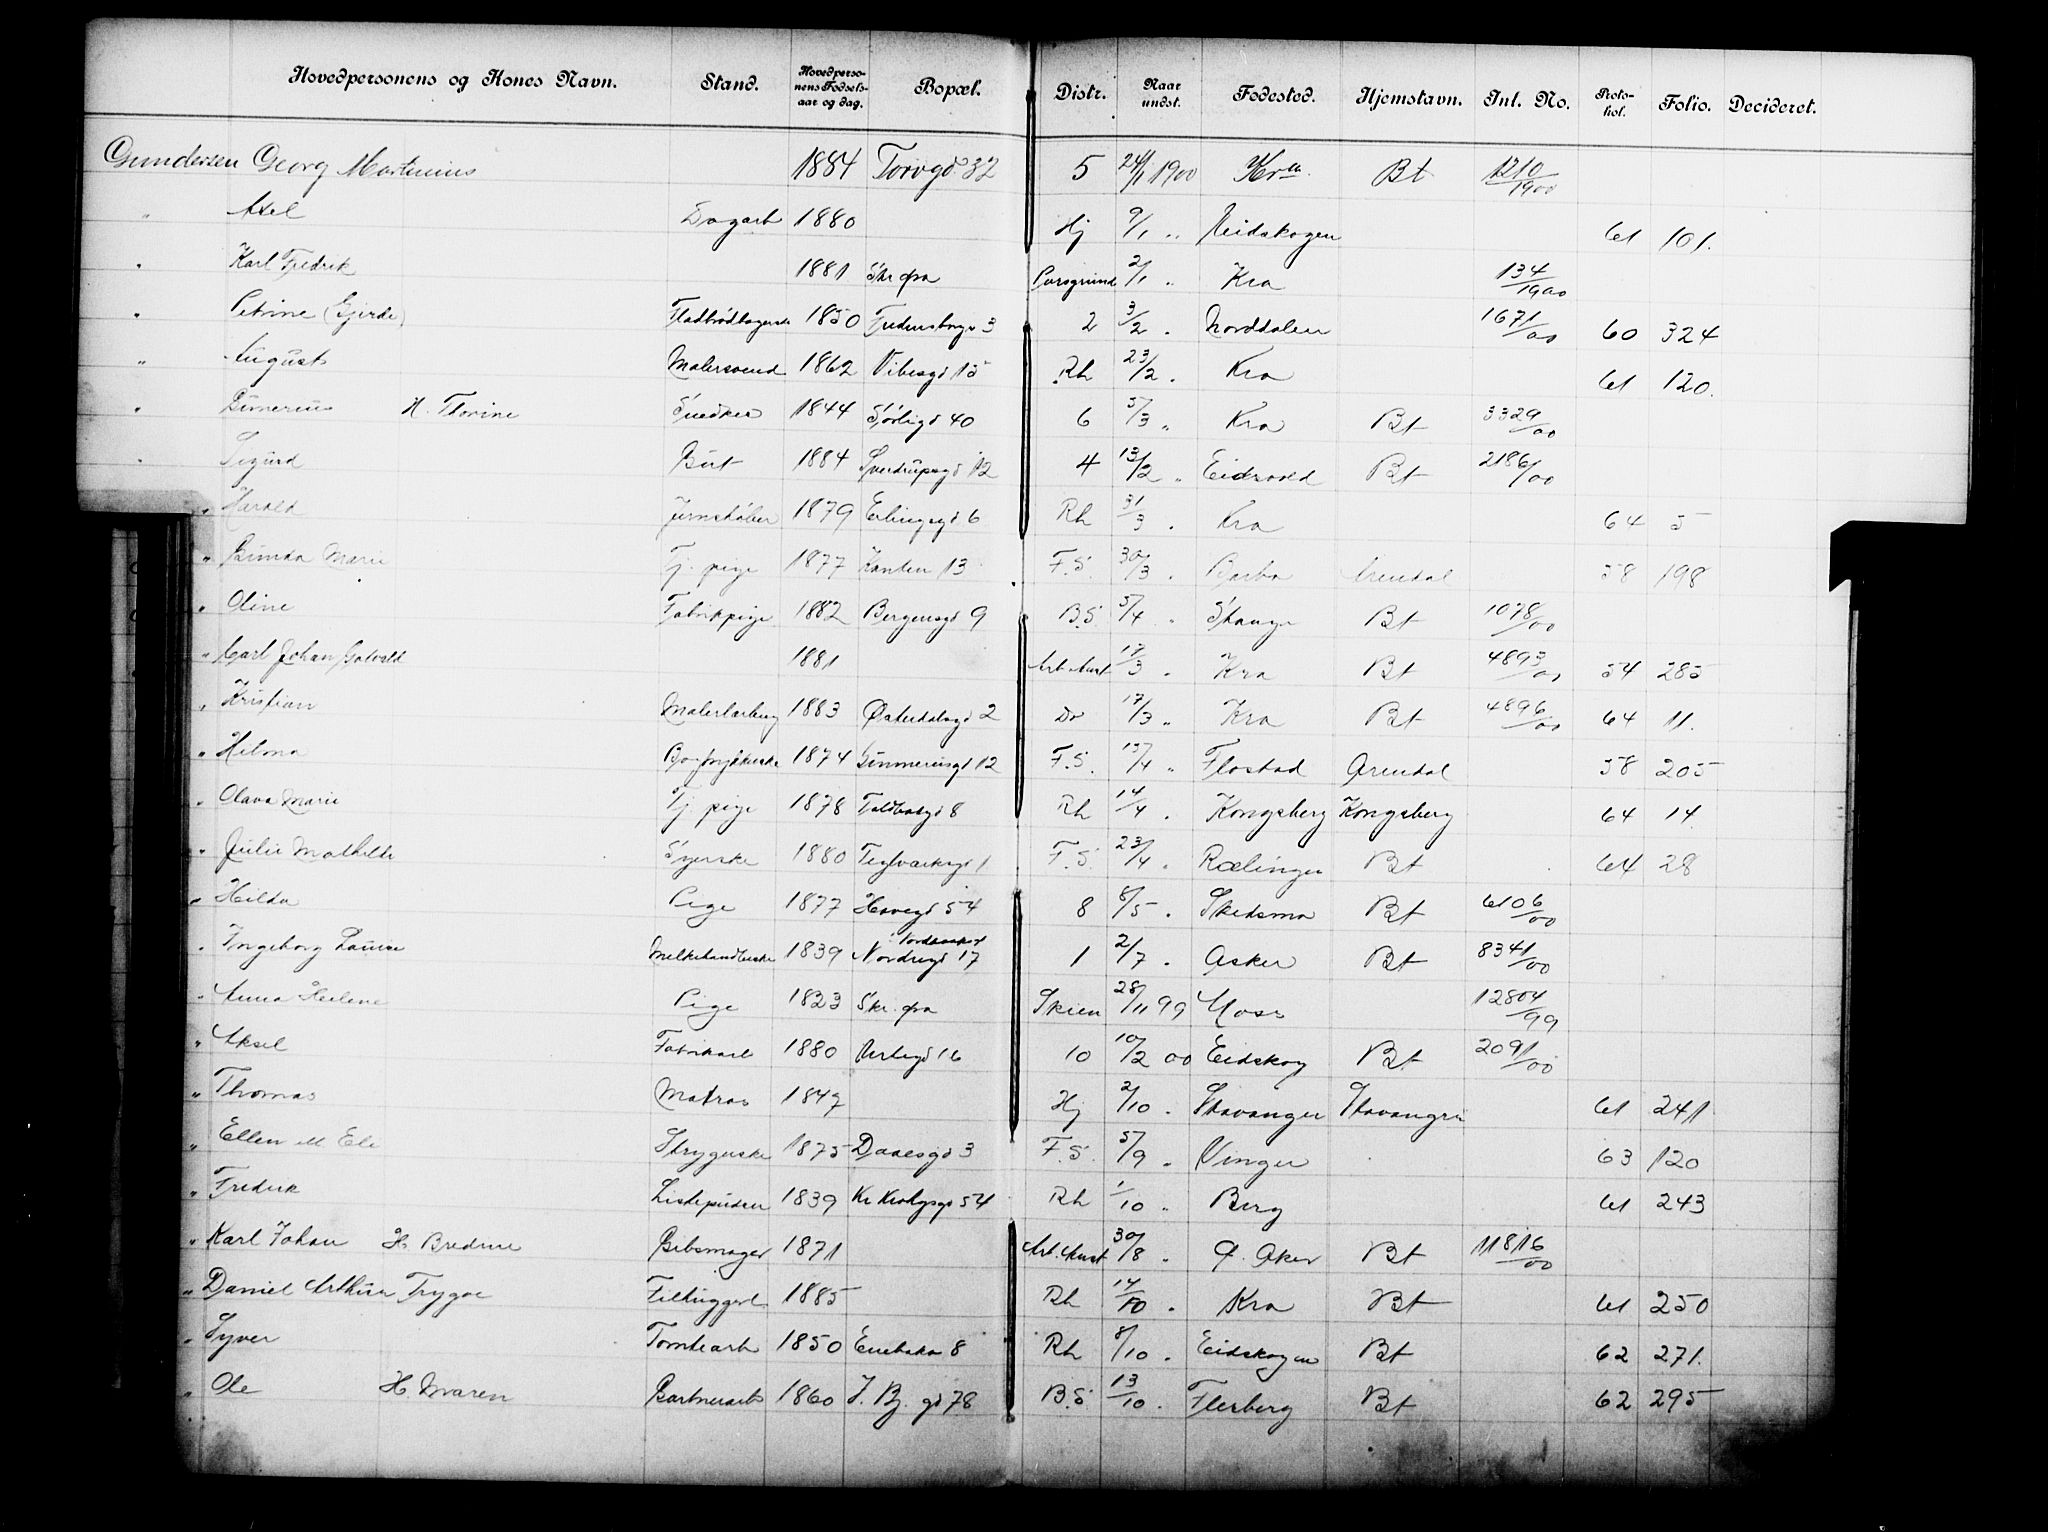 Hovedpersonens og Kones Navn. Stand. Hovedpersonens Fødselsaar og dag. Bopæl. Distr. Naar undst. Fødested. Hjemstavn. Inl. No. Protokol. Folio. Decideret.
Gundersen Georg Martinius 1884 Torvgd. 32 5 24/1 1900 Kra. Bt 1210/1900
" Axel Dagarb 1880 Hj 9/1 " Eidskogen 61 101.
" Karl Fredrik 1881 Skr. fra Porsgrund 2/1 " Kra 134/1900
" Petrine (Gjerde) Fladbrødbagerske 1850 Fredensborgv 3 2 3/2 " Norddalen 1671/00 60 324
" August Malersvend 1862 Vibesgd 15 Rh 23/2 " Kra 61 120.
" Gunerius H. Thorine Snedker 1844 Sørligd 40 6 5/3 " Kra Bt 3329/00
" Sigurd Gut 1884 Sverdrupsgd 12 4 13/2 " Eidsvold Bt 2186/00
" Harald Jernstøber 1879 Erlingsgd 6 Rh 31/3 " Kra 64 5
" Gunda Marie Tj. pige 1877 Kanten 13 F.S. 30/3 " Barbo Arendal 58 198
" Oline Fabrikpige 1882 Bergensgd 9 B.S. 5/4 " Stange Bt 1078/00
" Carl Johan Gotvald 1881 Arb. Anst 17/3 " Kra Bt 4893/00 54 285
" Kristian Malerlærling 1883 Østerdalsgd 2 Do 17/3 " Kra Bt 4896/00 64 11.
" Helma 1874 Gunnerusgd 12 F.S. 13/4 " Flostad Arendal 58 205
" Olava Marie Tj. pige 1878 Toldbodgd 8 Rh 14/4 " Kongsberg Kongsberg 64 14
" Julie Mathilde Syerske 1880 Teglværksgd 1 F.S. 23/4 " Rælingen Bt 64 28
" Hilda Pige 1877 Havegd 54 8 8/5 " Skedsmo Bt 6106/00
" Ingeborg Laurine Melkehandlerske 1839 Nordregd 17 1 2/7 " Asker Bt 8341/00
" Anna Helene Pige 1823 Skr. fra Skien 28/11 99 Moss 12804/99
" Aksel Fabrikarb 1880 Urtegd 16 10 10/2 00 Eidskog Bt 2091/00
" Thomas Matros 1847 Hj 2/10 " Stavanger Stavanger 61 241.
" Ellen M Eli Strygerske 1875 Daaesgd 3 F.S. 5/9 " Vinger 63 120
" Fredrik Listepudser 1839 Kr Krohgsgd 54 Rh 1/10 " Berg 61 243
" Karl Johan H. Bredine Gibsmager 1871 Arb. Anst 30/8 " Ø. Aker Bt 11816/00
" Daniel Arthur Trygve Filhuggerl. 1885 Rh 14/10 " Kra Bt 61 250
" Syver Tomtearb 1850 Enebakv 8 Rh 8/10 " Eidskogen Bt 62 271.
" Ole H. Maren Gartnerarb 1860 T. Bj. gd 78 B.S 13/10 " Flesberg Bt 62 295